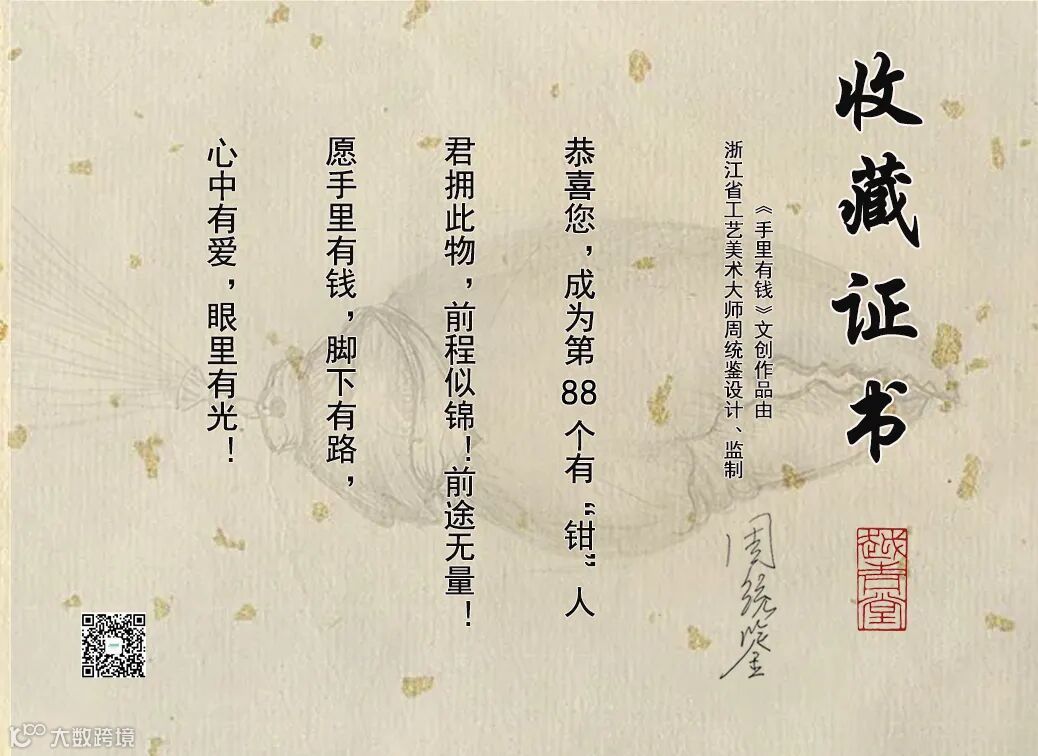 收藏证书
《手里有钱》文创作品由
浙江省工艺美术大师周统鉴设计、监制
周统鉴
恭喜您，成为第88个有“钳”人
君拥此物，前程似锦！前途无量！
愿手里有钱，脚下有路，
心中有爱，眼里有光！
大数跨境